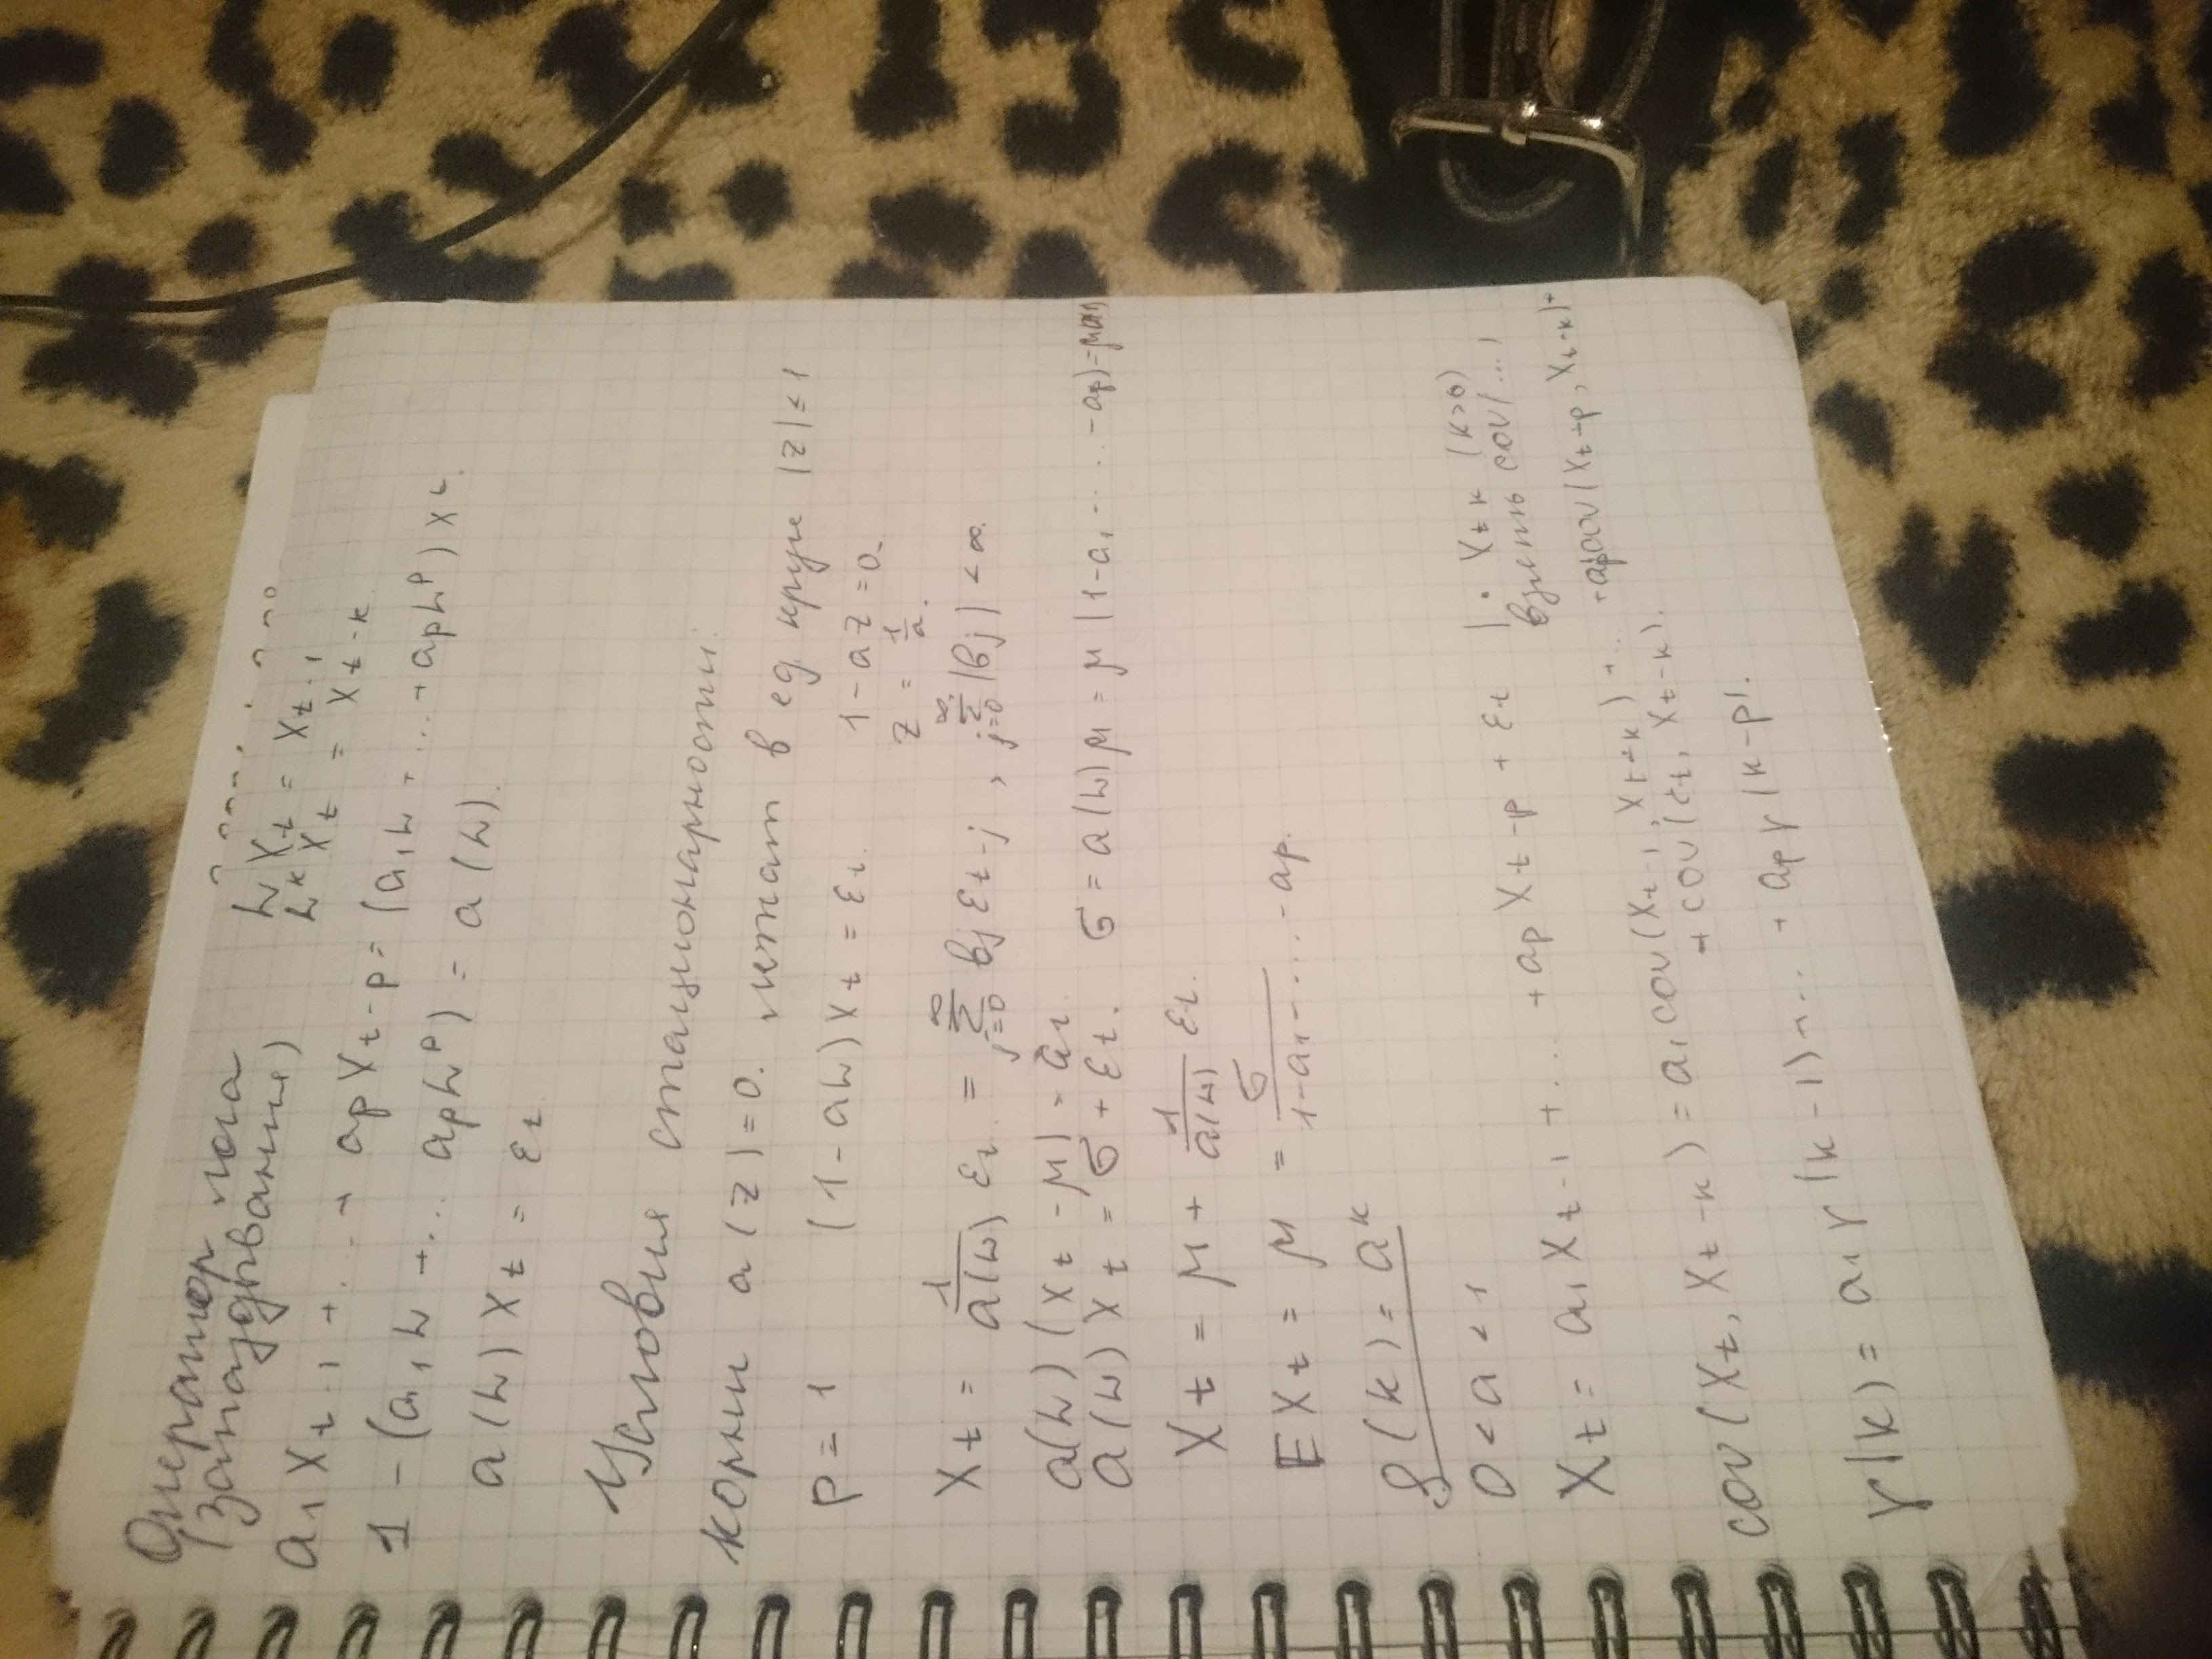 Оператор лага
(запаздывания) L X_t = X_{t-1}
L^k X_t = X_{t-k}
a_1 X_{t-1} + ... + a_p X_{t-p} = (a_1 L + ... + a_p L^p) X_t.
1 - (a_1 L + ... a_p L^p) = a(L).
a(L) X_t = ε_t
Условия стационарности:
корни a(z) = 0. лежат в ед круге |z| ≤ 1
p = 1 (1 - aL) X_t = ε_t. 1 - az = 0.
z = 1/a.
X_t = 1/a(L) ε_t = ∑_{j=0}^∞ b_j ε_{t-j}, ∑_{j=0}^∞ |b_j| < ∞.
a(L) (X_t - μ) = a_t.
a(L) X_t = б + ε_t. б = a(L) μ = μ (1 - a_1 - ... - a_p) =
X_t = μ + 1/a(L) ε_t.
E X_t = μ = б/(1 - a_1 - ... - a_p.)
ρ(k) = a^k
0 < a < 1
X_t = a_1 X_{t-1} + ... + a_p X_{t-p} + ε_t | · X_{t-k} (k>0)
взять cov(...)
cov(X_t, X_{t-k}) = a_1 cov(X_{t-1}, X_{t-k}) + ... + a_p cov(X_{t-p}, X_{t-k}) +
+ cov(ε_t, X_{t-k}).
γ(k) = a_1 γ(k-1) + ... + a_p γ(k-p).